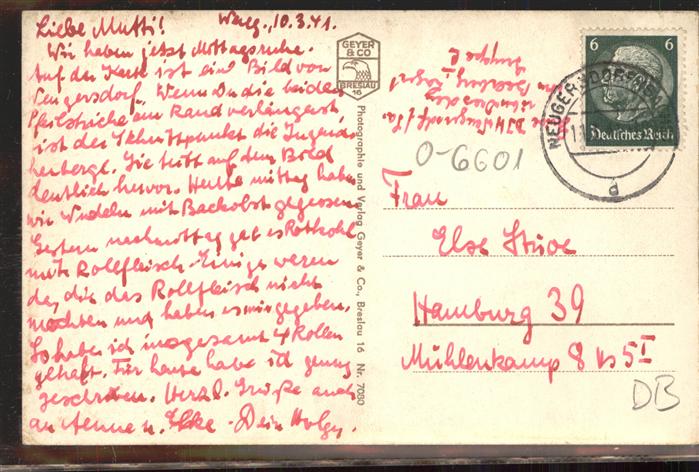 Liebe Mutti! 10.3.41.
Wir haben jetzt Mittagsruhe.
Auf der Karte ist ein Bild von
Wenn Du die beiden
Pfeilstriche am Rand verlängerst,
ist der Schnittpunkt die Jugend-
herberge. Sie tritt auf dem Bild
deutlich hervor. Heute mittag haben
wir Nudeln mit Backobst gegessen
Gestern nachmittag gab es Rotkohl
mit Rollfleisch. Einige waren
da, die das Rollfleisch nicht
mochten und haben es mir gegeben.
So habe ich insgesamt 4 Rollen
gehabt. Für heute habe ich genug
geschrieben. Herzl. Grüße auch
an u. Elke. Dein Holger.
GEYER
& CO
BRESLAU
16
Photographie und Verlag Geyer & Co., Breslau 16 Nr. 7080
6 6
Deutsches Reich
d
O-6601
Frau
Else Stüve
Hamburg 39
Mühlenkamp 8 5I
DB